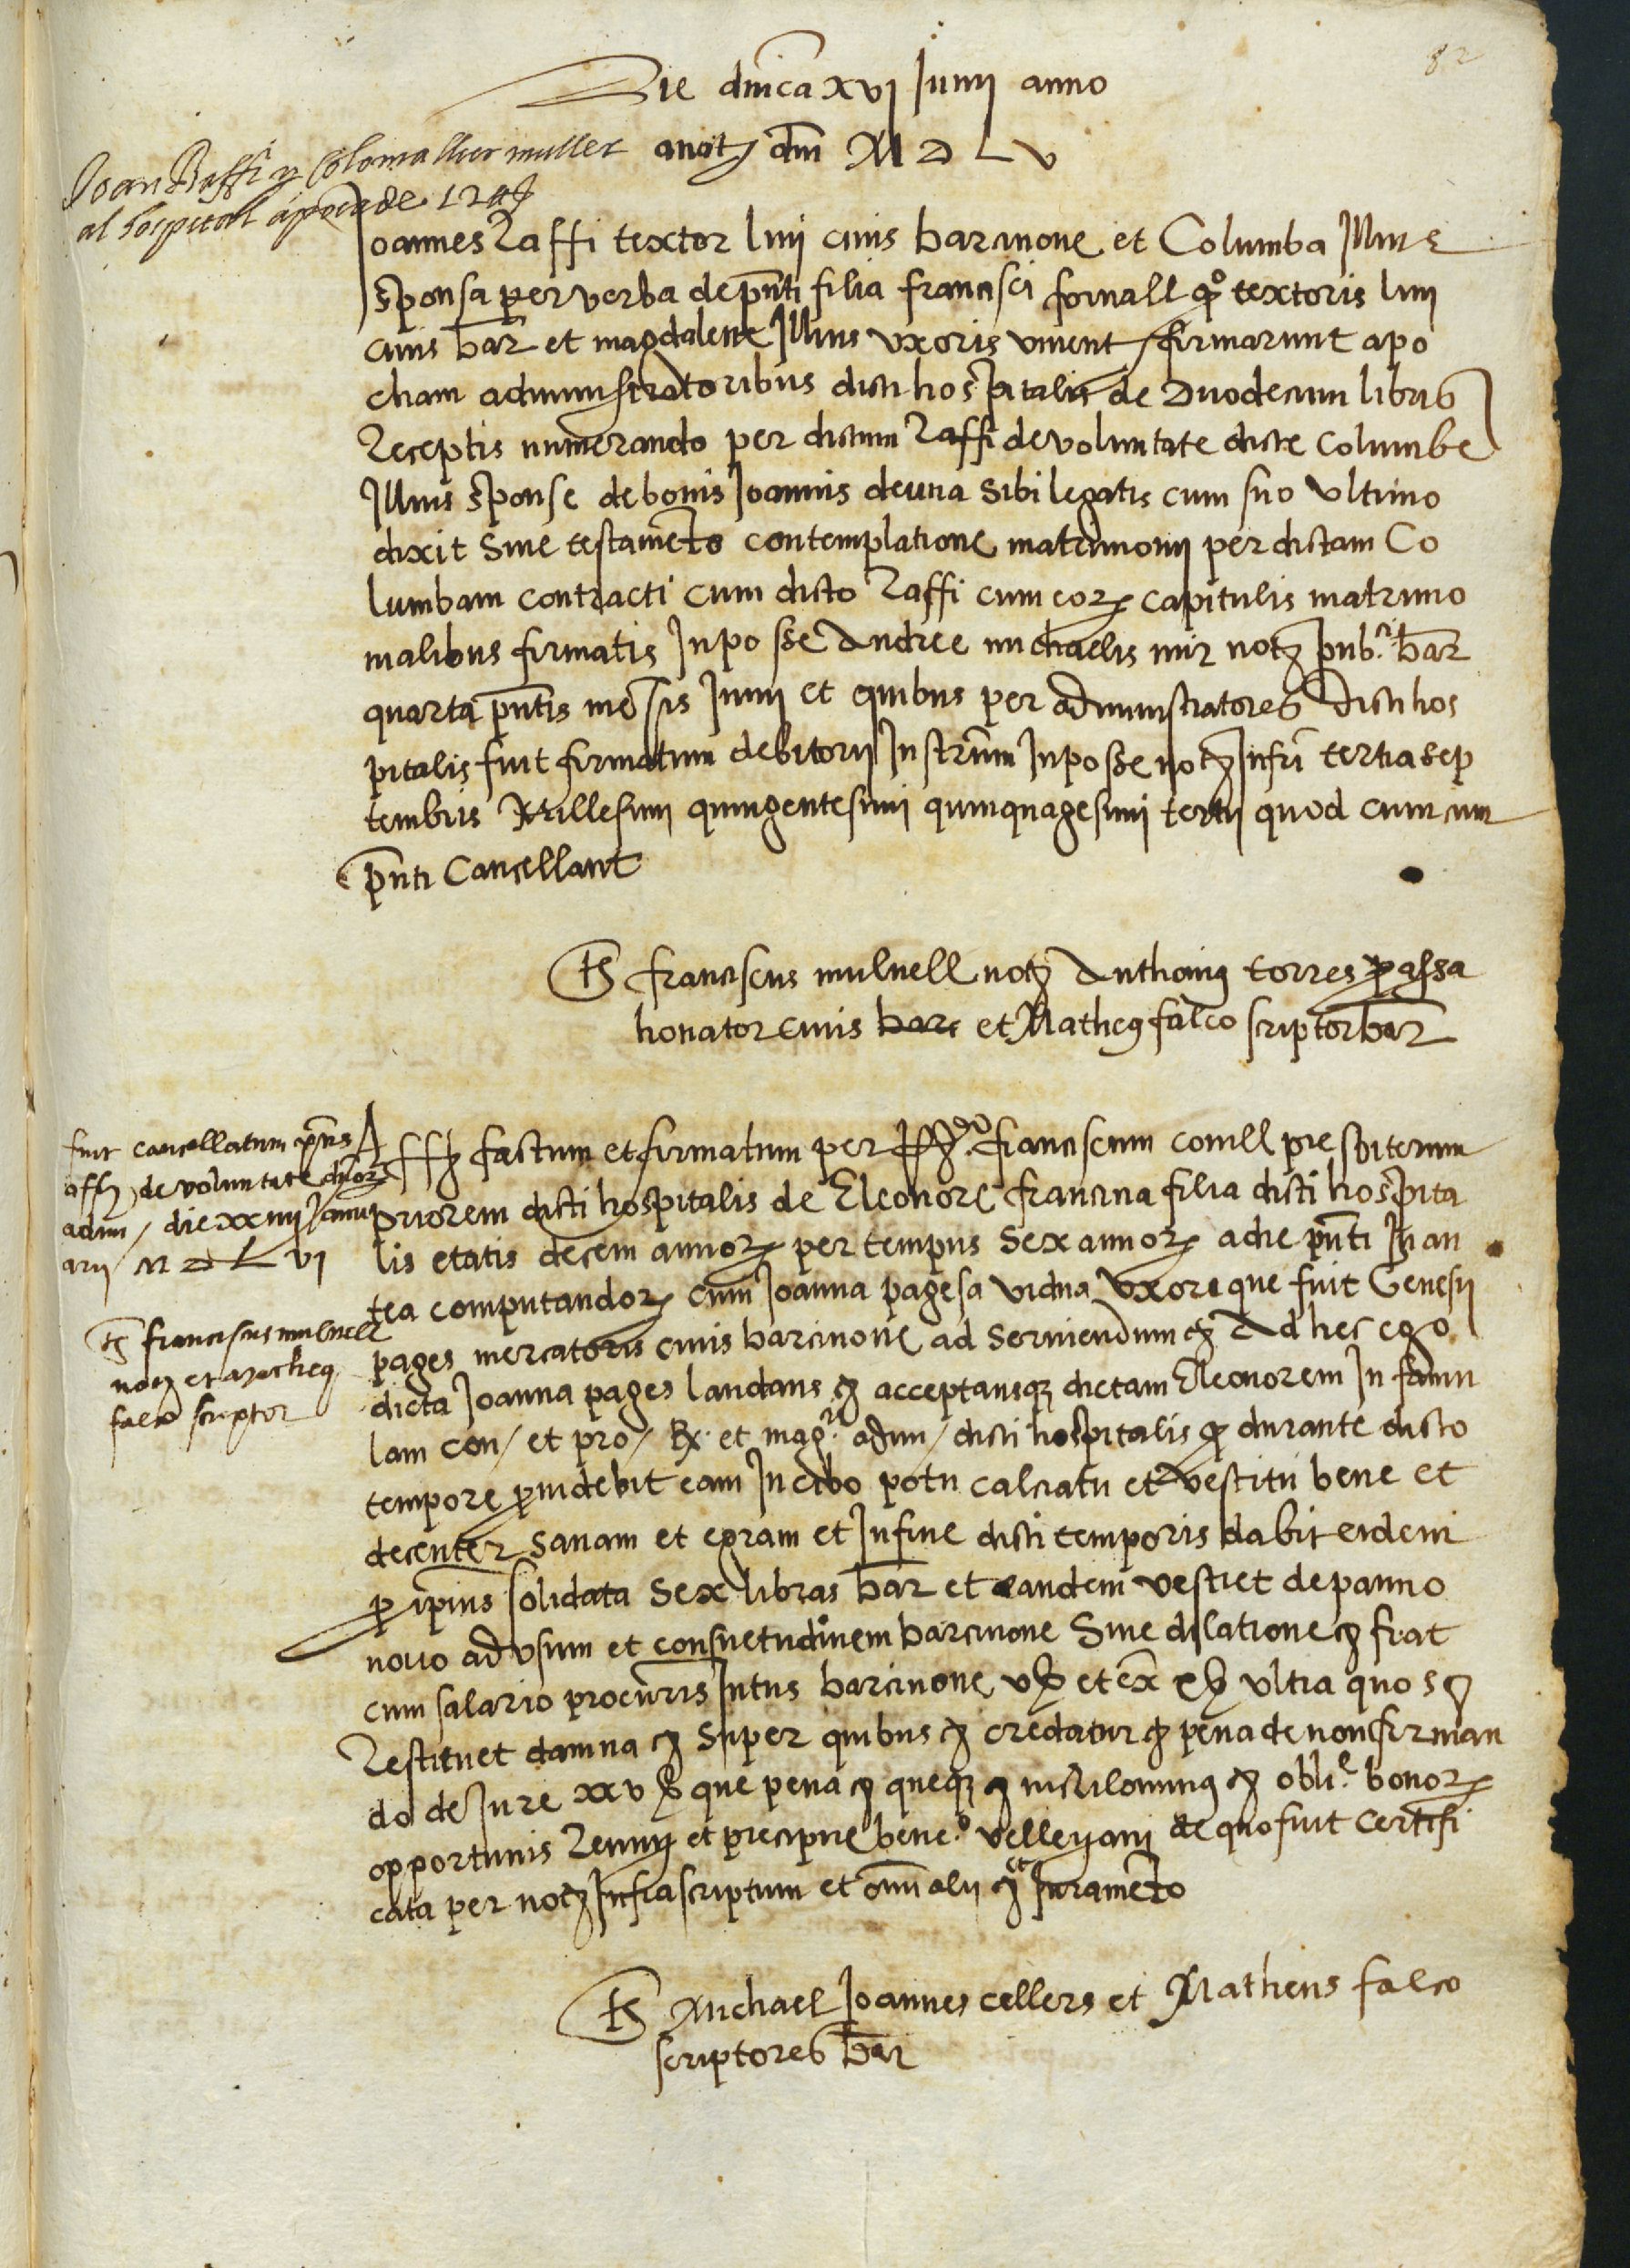 82
Die dnica xvj Junij anno
anat dni M D L v
Joan Raffi y Coloma sa muller
al hospital apoca de 12 ll
Joannes Raffi textor linj civis barcinone et Columba Illius
sponsa per verba de pnti filia francisci fornall qo textoris linj
civis bar et magdalene Illius vxoris vivent firmarunt apo
cham administratoribus dicti hospitalis de Duodecim libris
Receptis numerando per dictum Raffi de voluntate dicte Columbe
Illius sponse de bonis Joannis deuna sibi legatis cum suo vltimo
dixit sive testamento contemplatione matrimonij per dictam Co
lumbam contracti cum dicto Raffi cum eor capitulis matrimo
nialibus firmatis In posse Andree michaelis mir not pub.ci bar
quarta pntis mensis Junij et quibus per administratores dicti hos
pitalis fuit firmatum debitorij Instrum In posse not Infri tertia sep
tembris Millesimj quingentesimj quinquagesimj tertij quod cum cum
pnti Cancellant
ts franciscus mulnell not Anthonius torres passa
honator civis bar et Matheus falco scriptor bar
fuit cancellatum pns
aff de voluntate dnor
admi / die xxiiij Janu
arij M D L vj
ts franciscus mulnell
not et matheus
falco scriptor
Aff factum et firmatum per R.du franciscum comell presbiterum
priorem dicti hospitalis de Eleonore francina filia dicti hospita
lis etatis decem annor per tempus sex annor a die pnti In an
tea computandor cum Joanna pagesa vidua vxore que fuit Genesij
pages mercatoris civis barcinone ad serviendum etc Ad hec ego
dicta Joanna pages laudans etc acceptansq dictam Eleonorem In famu
lam con / et pro / R. et mag.ci admi / dicti hospitalis q durante dicto
tempore providebit eam In cibo potu calciatu et vestitu bene et
decenter sanam et egram et In fine dicti temporis dabit eidem
p ipius solidata sex libras bar et eandem vestiet de panno
novo ad vsum et consuetudinem barcinone Sine dilatione etc fiat
cum salario procuris Intus barcinone v s et ex x s vltra quos etc
Restituet damna etc super quibus etc credatur etc pena de non firman
do de Jure xxv s que pena etc queq etc nichilominus etc obli.e bonor
opportunis Renun et precipue bene.o velleyanj de quo fuit certifi
cata per not Infrascriptum et omi alij etc et Juramento
ts Michael Joannes cellers et Matheus falco
scriptores bar